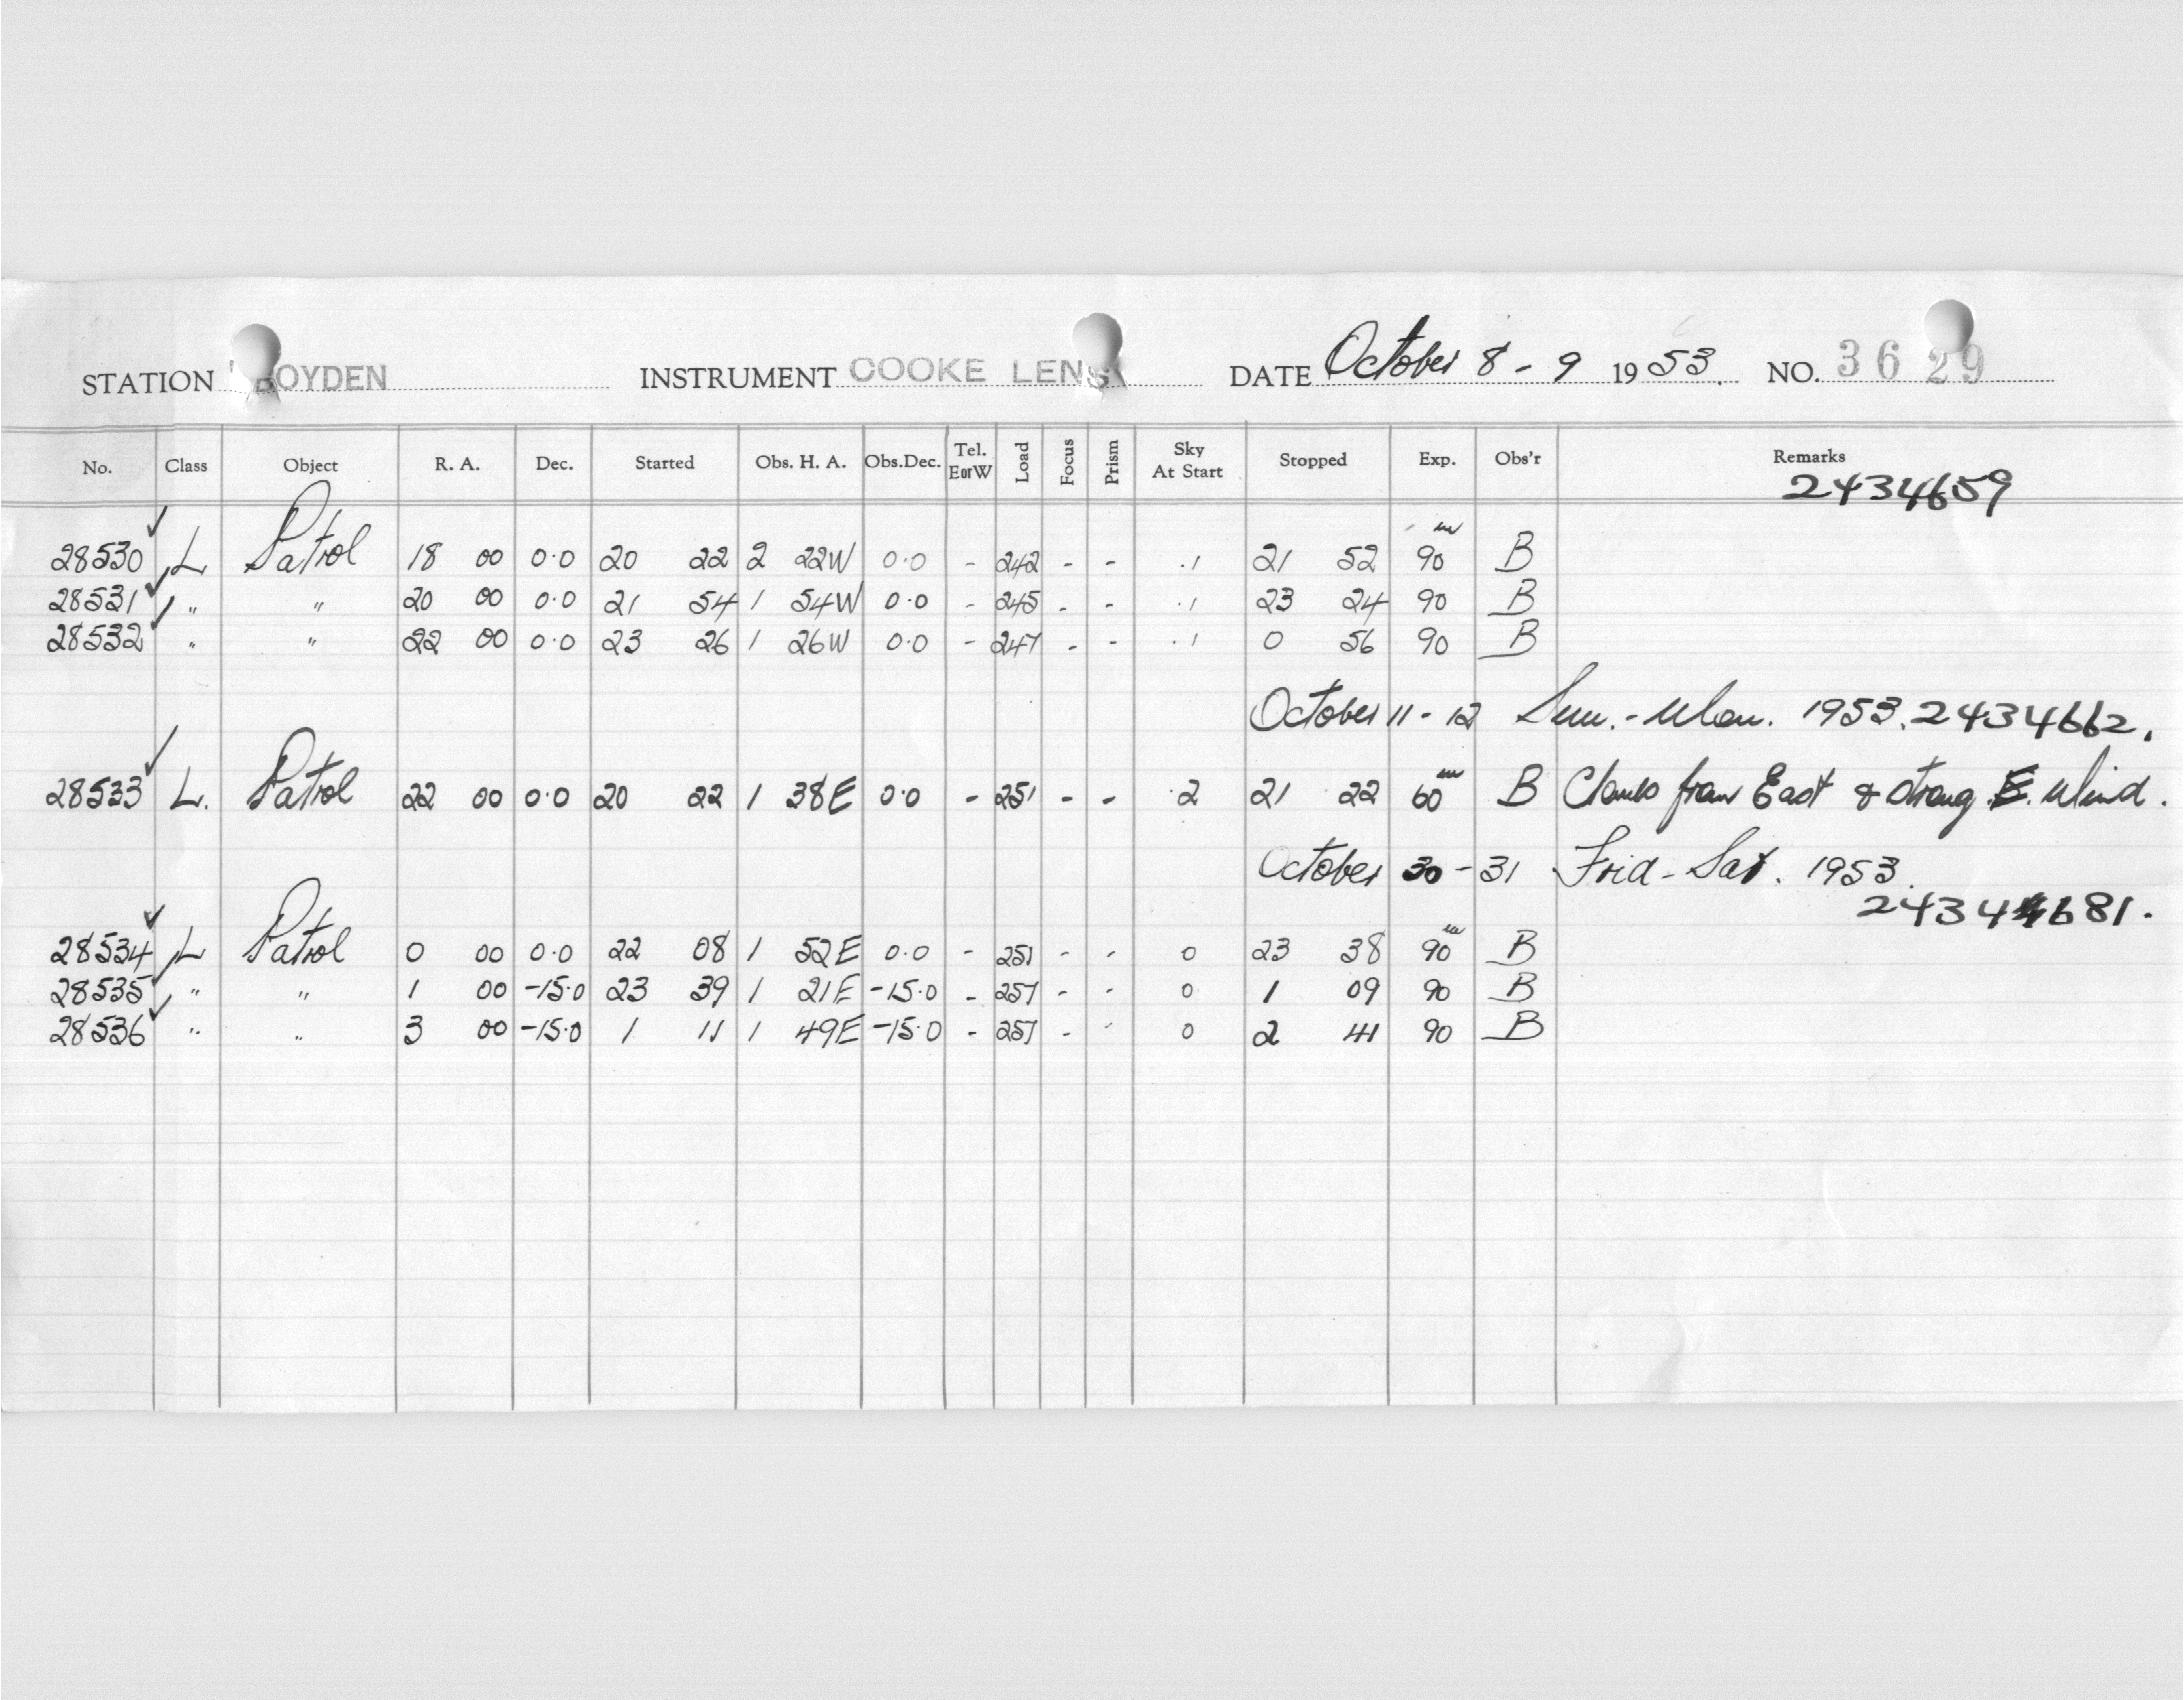 STATION BOYDEN INSTRUMENT COOKE LENS DATE October 8 - 9 1953. NO. 3629
No. Class Object R. A. Dec. Started Obs. H. A. Obs.Dec. Tel. EorW Load Focus Prism Sky At Start Stopped Exp. Obs'r Remarks
2434659
28530 ✓ L Patrol 18 00 0.0 20 22 2 22W 0.0 - 242 - - .1 21 52 90 m B
28531 ✓ " " 20 00 0.0 21 54 1 54W 0.0 - 245 - - .1 23 24 90 B
28532 ✓ " " 22 00 0.0 23 26 1 26W 0.0 - 247 - - .1 0 56 90 B
October 11 - 12 Sun. - Mon. 1953. 2434662.
28533 ✓ L. Patrol 22 00 0.0 20 22 1 38E 0.0 - 251 - - .2 21 22 60 m B Clouds from East & strong E. Wind.
October 30 - 31 Frid - Sat. 1953.
2434681.
28534 ✓ L Patrol 0 00 0.0 22 08 1 52E 0.0 - 251 - - 0 23 38 90 m B
28535 ✓ " " 1 00 -15.0 23 39 1 21E -15.0 - 257 - - 0 1 09 90 B
28536 ✓ " " 3 00 -15.0 1 11 1 49E -15.0 - 257 - - 0 2 41 90 B